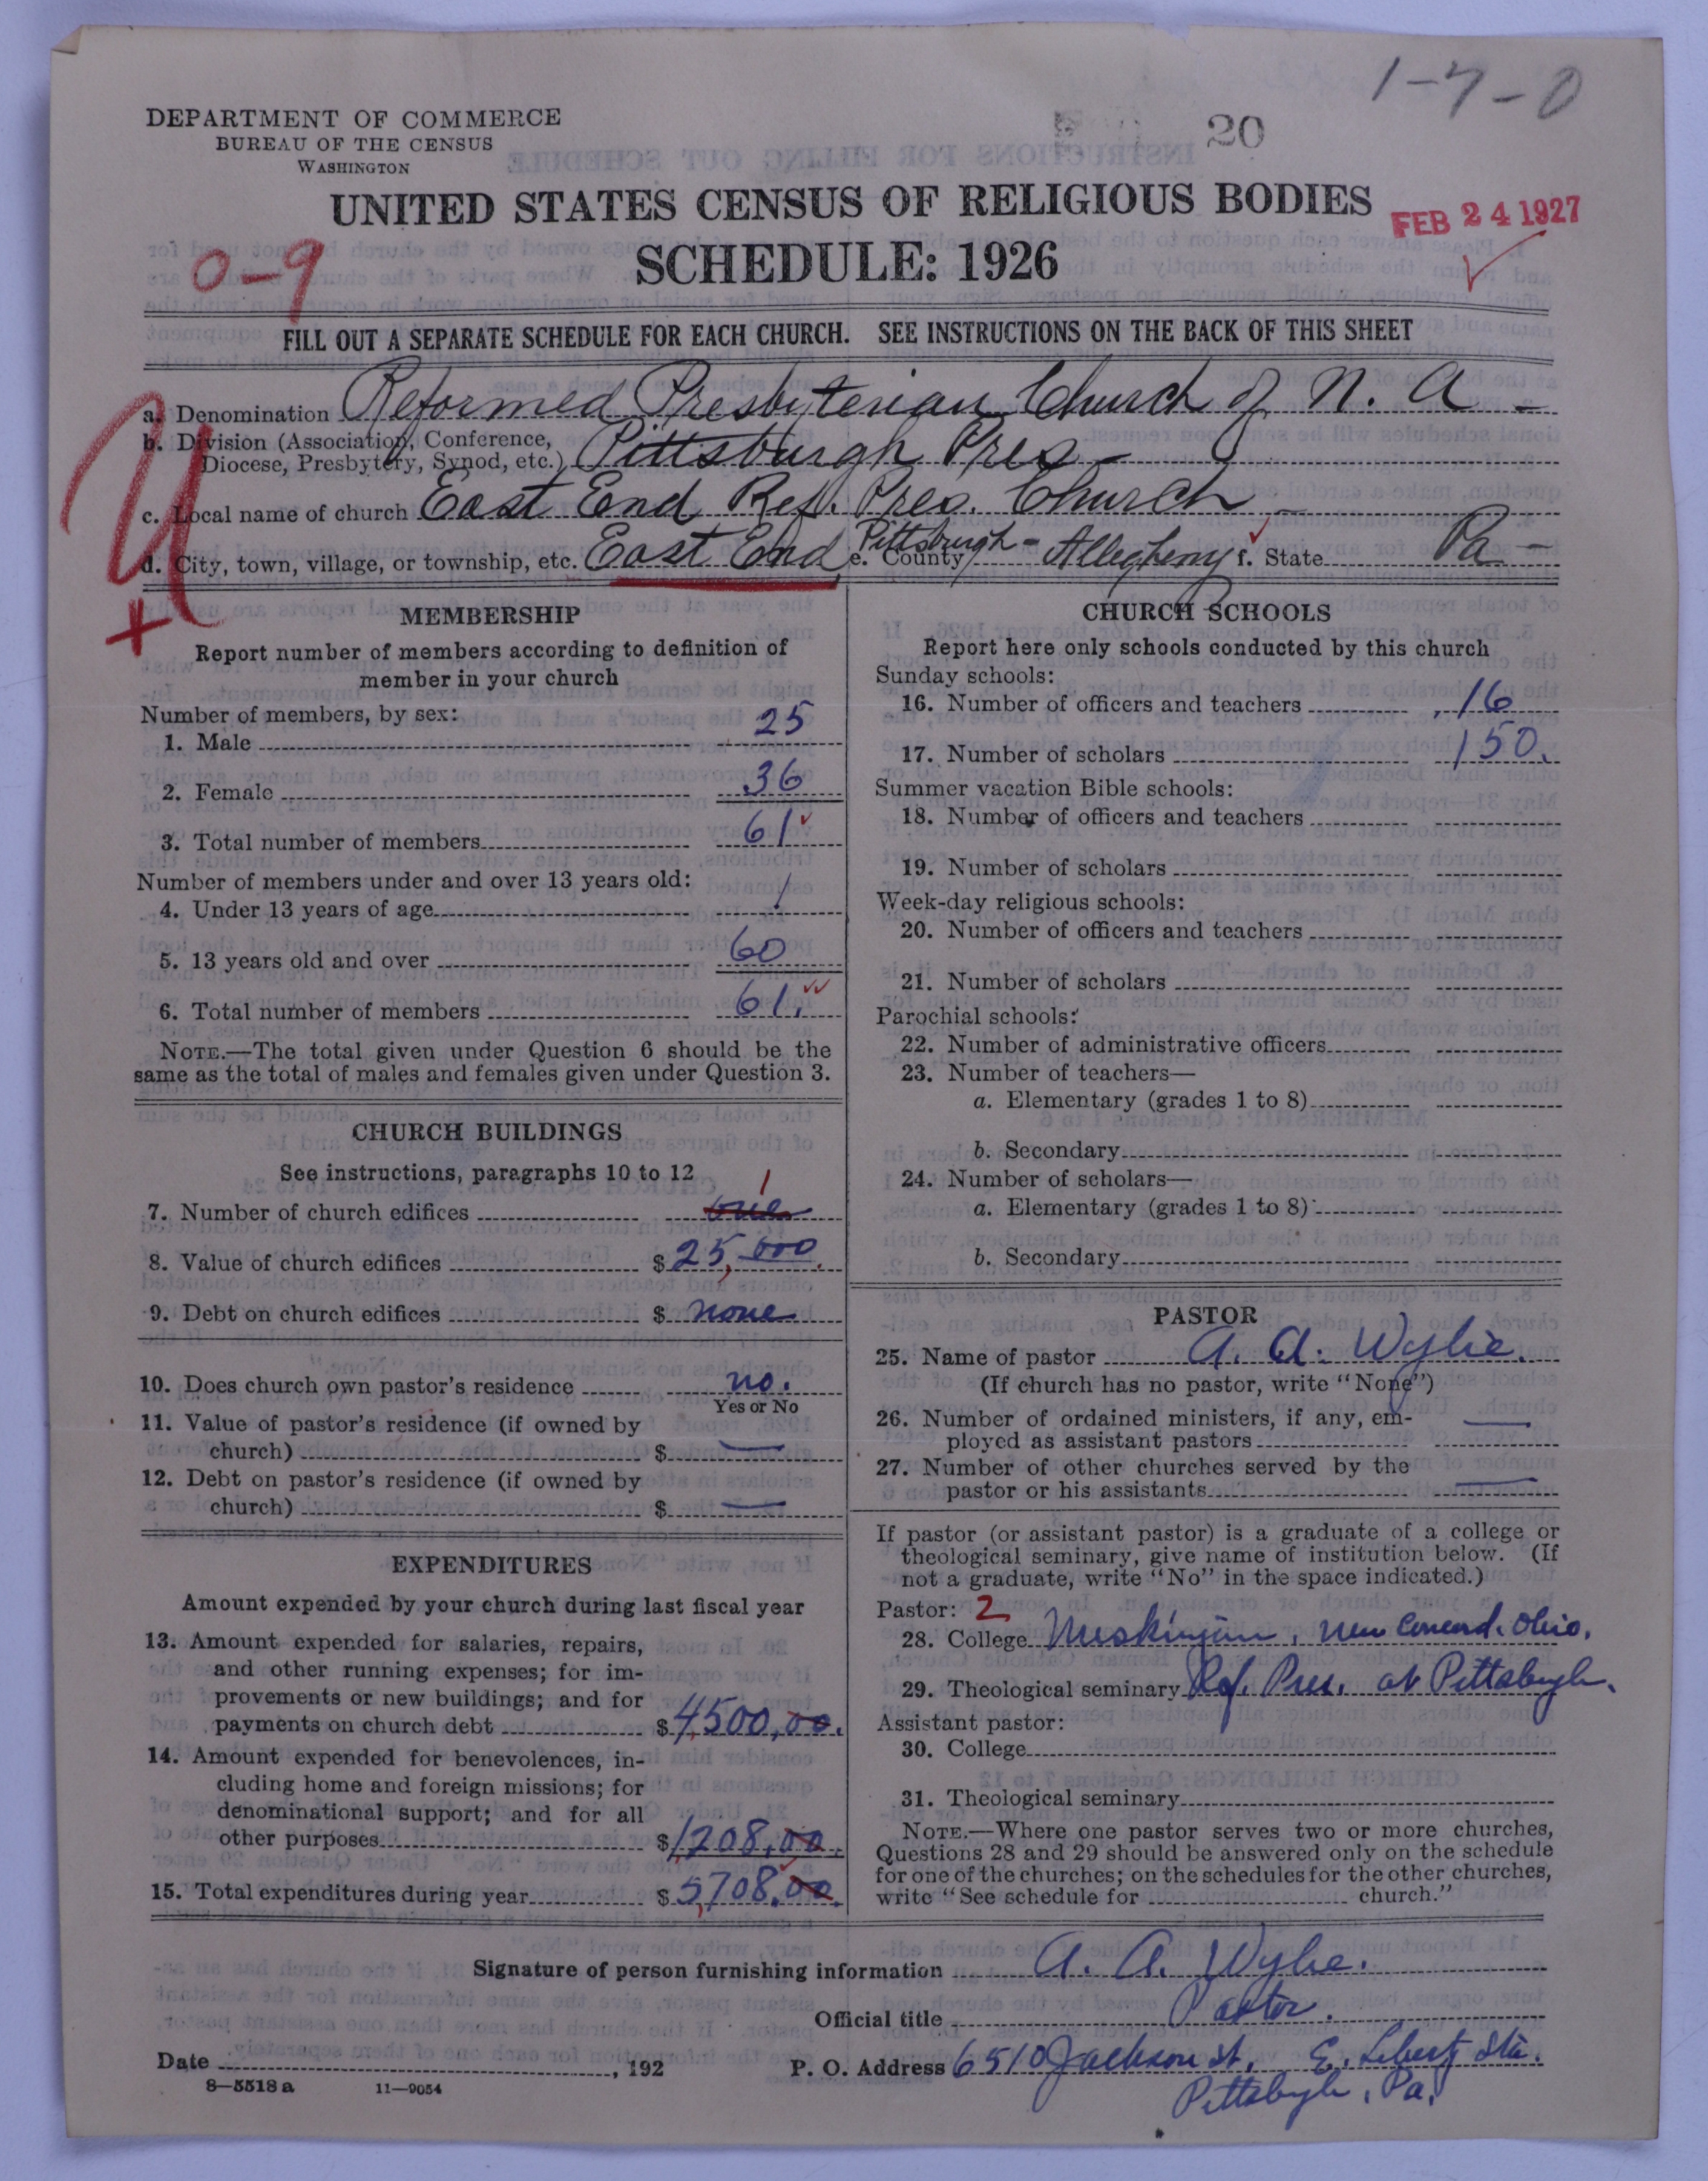 1-7-0
DEPARTMENT OF COMMERCE
BUREAU OF THE CENSUS
WASHINGTON
20
UNITED STATES CENSUS OF RELIGIOUS BODIES
FEB 24 1927
SCHEDULE: 1926
0-9
FILL OUT A SEPARATE SCHEDULE FOR EACH CHURCH. SEE INSTRUCTIONS ON THE BACK OF THIS SHEET
a. Denomination Reformed Presbyterian Church of N. A -
b. Division (Association, Conference, Diocese, Presbytery, Synod, etc.) Pittsburgh Pres -
c. Local name of church East End Ref. Pres. Church -
d. City, town, village, or township, etc. East End Pittsburgh - e. County Allegheny f. State Pa -
U
+
MEMBERSHIP
Report number of members according to definition of
member in your church
Number of members, by sex:
1. Male 25
2. Female 36
3. Total number of members 61
Number of members under and over 13 years old:
4. Under 13 years of age 1
5. 13 years old and over 60
6. Total number of members 61.
NOTE.—The total given under Question 6 should be the
same as the total of males and females given under Question 3.
CHURCH BUILDINGS
See instructions, paragraphs 10 to 12
7. Number of church edifices one 1
8. Value of church edifices $ 25,000.
9. Debt on church edifices $ none
10. Does church own pastor's residence no.
Yes or No
11. Value of pastor's residence (if owned by
church) $ —
12. Debt on pastor's residence (if owned by
church) $ —
EXPENDITURES
Amount expended by your church during last fiscal year
13. Amount expended for salaries, repairs,
and other running expenses; for im-
provements or new buildings; and for
payments on church debt $ 4500,00.
14. Amount expended for benevolences, in-
cluding home and foreign missions; for
denominational support; and for all
other purposes $ 1208,00.
15. Total expenditures during year $ 5708.00.
CHURCH SCHOOLS
Report here only schools conducted by this church
Sunday schools:
16. Number of officers and teachers 16
17. Number of scholars 150.
Summer vacation Bible schools:
18. Number of officers and teachers
19. Number of scholars
Week-day religious schools:
20. Number of officers and teachers
21. Number of scholars
Parochial schools:
22. Number of administrative officers
23. Number of teachers—
a. Elementary (grades 1 to 8)
b. Secondary
24. Number of scholars—
a. Elementary (grades 1 to 8)
b. Secondary
PASTOR
25. Name of pastor A. A. Wylie.
(If church has no pastor, write "None")
26. Number of ordained ministers, if any, em-
ployed as assistant pastors —
27. Number of other churches served by the
pastor or his assistants —
If pastor (or assistant pastor) is a graduate of a college or
theological seminary, give name of institution below. (If
not a graduate, write "No" in the space indicated.)
Pastor: 2
28. College Muskingum, New Concord. Ohio.
29. Theological seminary Ref. Pres. at Pittsburgh.
Assistant pastor:
30. College
31. Theological seminary
NOTE.—Where one pastor serves two or more churches,
Questions 28 and 29 should be answered only on the schedule
for one of the churches; on the schedules for the other churches,
write "See schedule for church."
Signature of person furnishing information A. A. Wylie.
Official title Pastor.
Date , 192
P. O. Address 6510 Jackson st. E. Liberty Sta.
Pittsburgh, Pa.
8-5518 a 11-9054